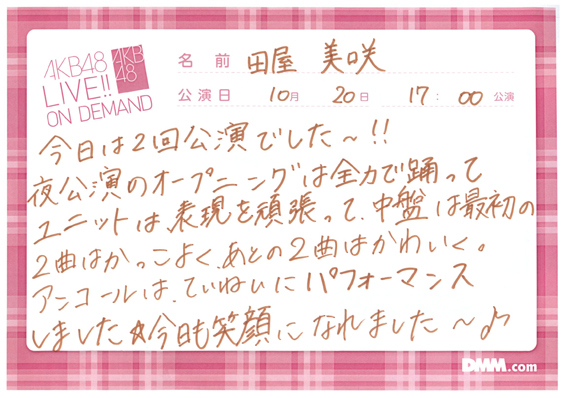 AKB48
LIVE!!
ON DEMAND
AKB
48
名前 田屋 美咲
公演日 10月 20日 17:00 公演
今日は2回公演でした～!!
夜公演のオープニングは全力で踊って
ユニットは、表現を頑張って、中盤は最初の
2曲はかっこよく、あとの2曲はかわいく。
アンコールは、ていねいにパフォーマンス
しました☆今日も笑顔になれました～♪
DMM.com